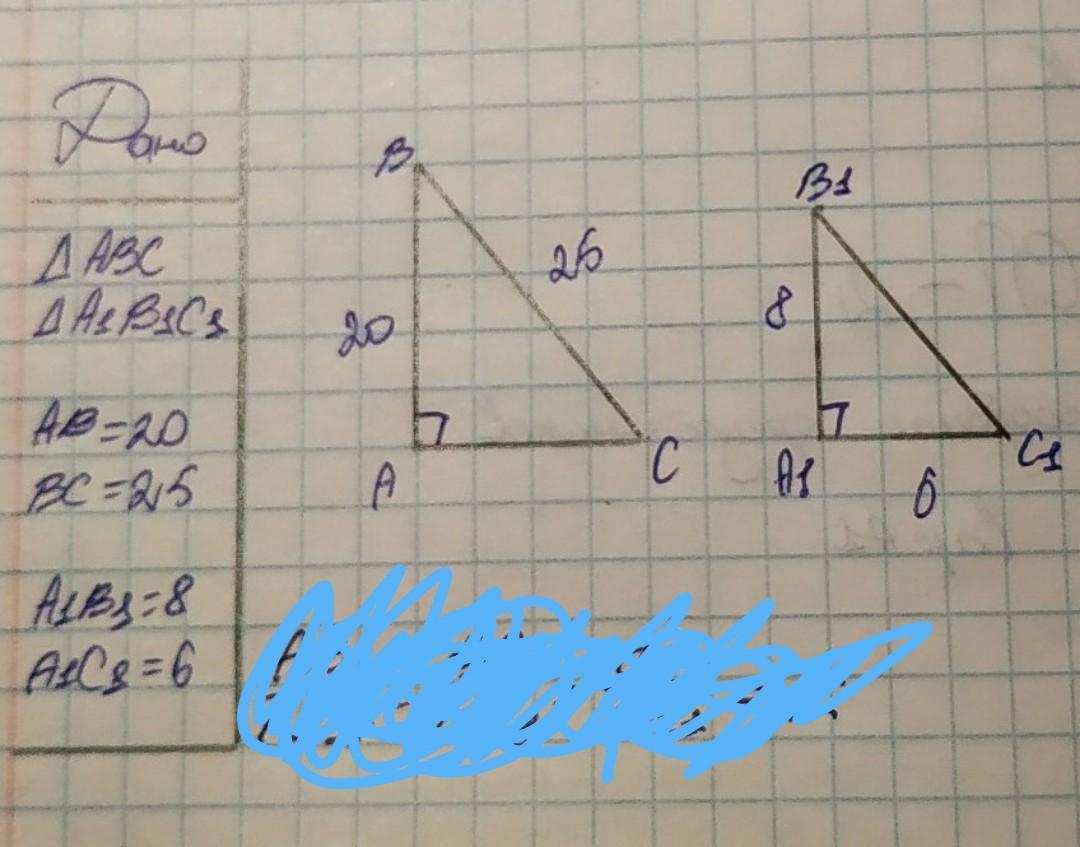 Дано
Δ ABC
Δ A1B1C1
AB=20
BC=25
A1B1=8
A1C1=6
B
25
20
A
C
B1
8
A1
C1
6